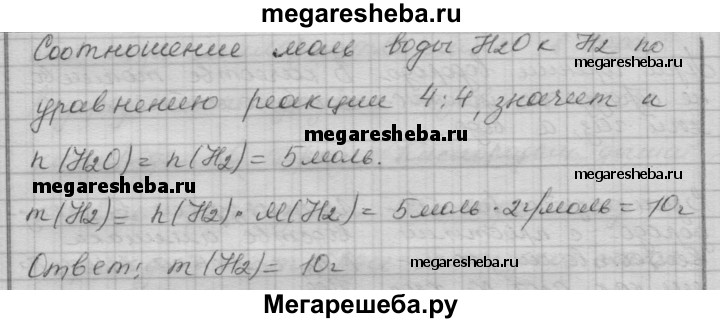 megaresheba.ru
Соотношение моль воды H2O к H2 по
megaresheba.ru
уравнению реакции 4:4, значит и
megaresheba.ru
n(H2O) = n(H2) = 5 моль.
megaresheba.ru
megaresheba.ru
m(H2) = n(H2) • M(H2) = 5 моль · 2г/моль = 10г
Ответ: m(H2) = 10г
megaresheba.ru
Мегарешеба.ру